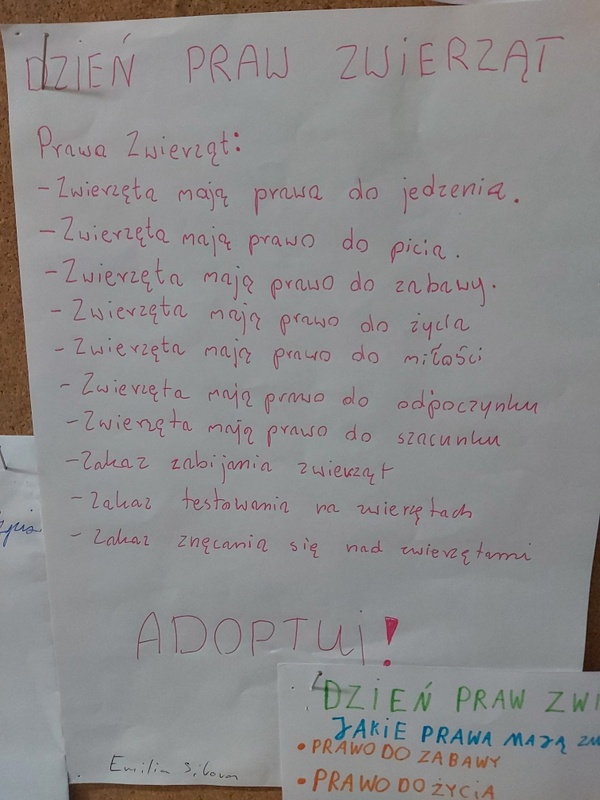 DZIEŃ PRAW ZWIERZĄT
Prawa Zwierząt:
- Zwierzęta mają prawa do jedzenia.
- Zwierzęta mają prawo do picia.
- Zwierzęta mają prawo do zabawy.
- Zwierzęta mają prawo do życia
- Zwierzęta mają prawo do miłości
- Zwierzęta mają prawo do odpoczynku
- Zwierzęta mają prawo do szacunku
- Zakaz zabijania zwierząt
- Zakaz testowania na zwierzętach
- Zakaz znęcania się nad zwierzętami
ADOPTUj!
Emilia
DZIEŃ PRAW ZWI
JAKIE PRAWA MAJĄ ZW
• PRAWO DO ZABAWY
• PRAWO DO ŻYCIA